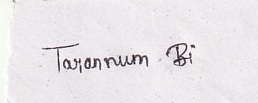 Tarannum Bi